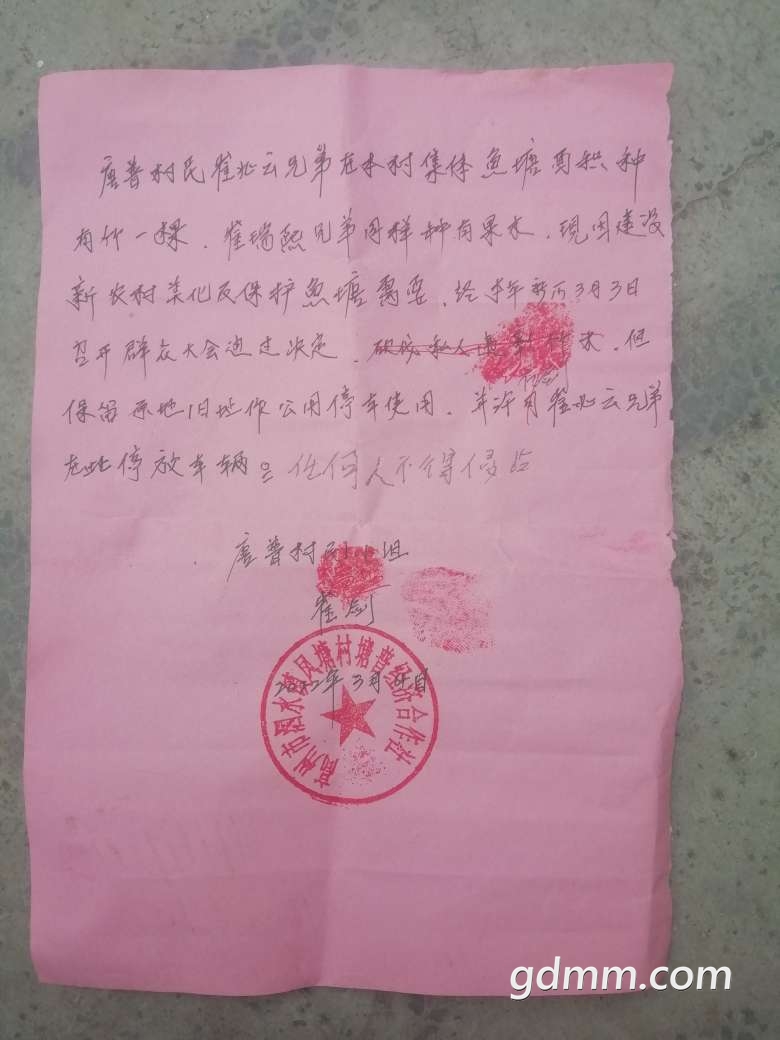 唐普村民崔兆云兄弟在本村集体鱼塘面积种
有竹一棵．崔瑞熙兄弟同样种有果木．现因建设
新农村美化及保护鱼塘需要．经本年新历3月3日
召开群众大会通过决定．砍成私人果木．但
保留原地旧址作公用停车使用．并许可崔兆云兄弟
在此停放车辆。任何人不得侵占
唐普村小组
崔剑
2022年3月日
高州市泗水镇凤塘村塘普经济合作社
gdmm.com